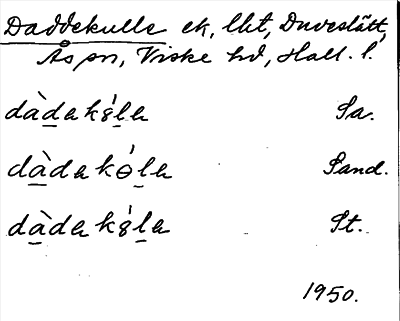 Daddekulle ek, lht, Duveslätt,
Ås sn, Viske hd, Hall. l.
dàdak8́la Sa.
dàdakө́la Sand.
dàdak8́la St.
1950.